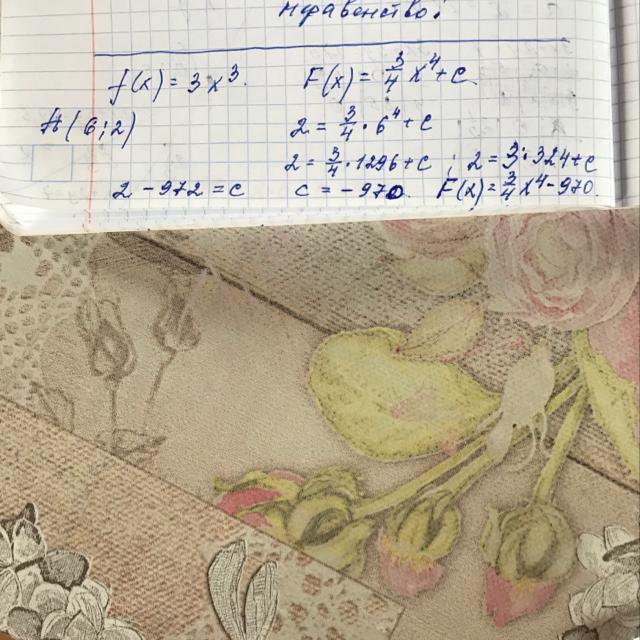 неравенство:
f(x) = 3x³ F(x) = 3/4 x⁴ + C
A(6; 2) 2 = 3/4 · 6⁴ + C
2 = 3/4 · 1296 + C ; 2 = 3 · 324 + C
2 - 972 = C C = -970. F(x) = 3/4 x⁴ - 970